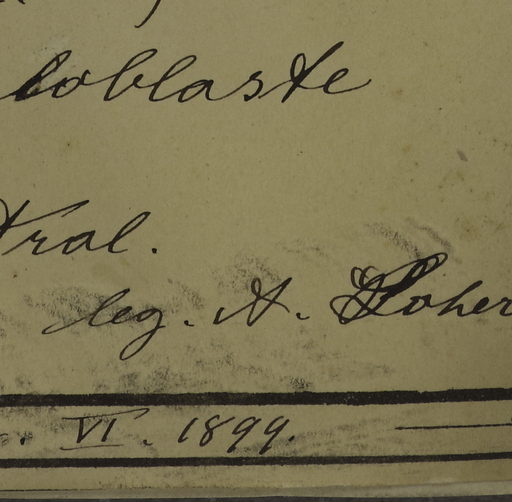 loblaste
tral.
leg. A. Loher
. VI. 1899.